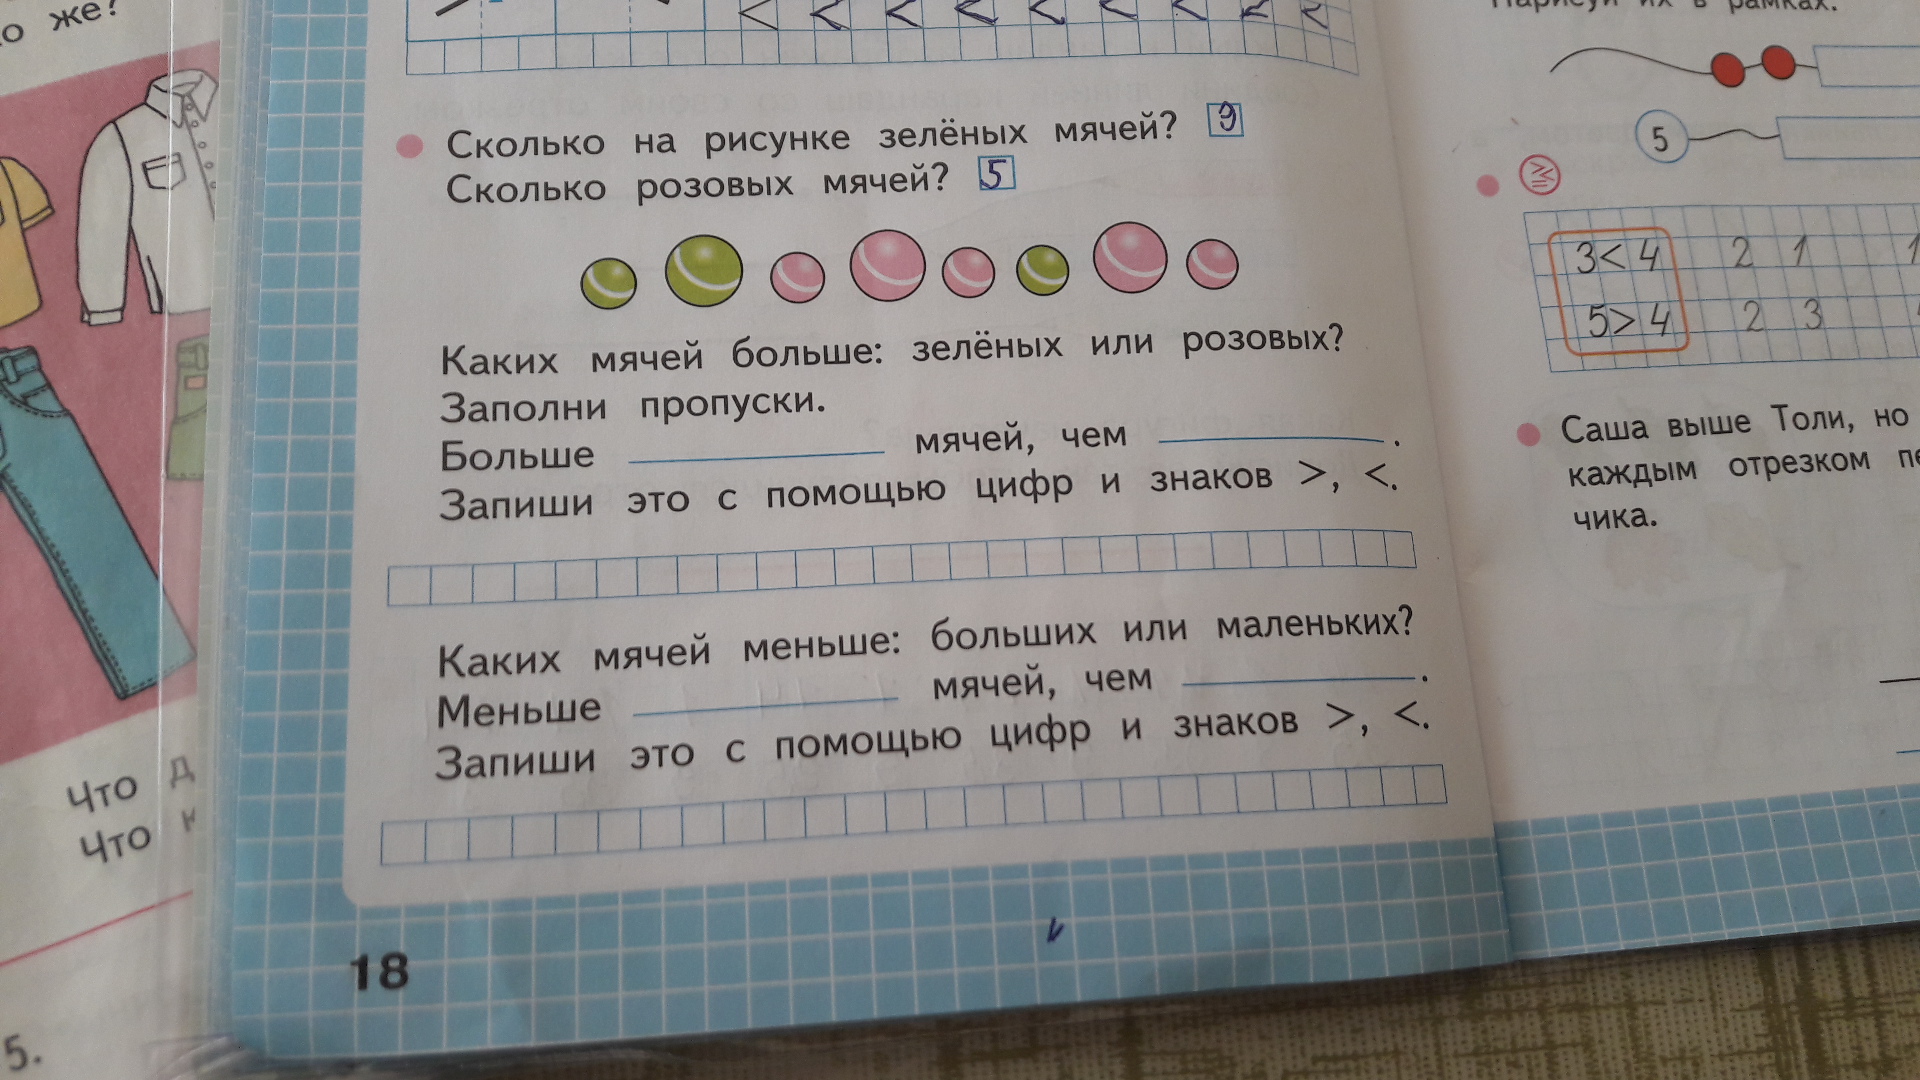 о же?
< < < < < < < < <
Сколько на рисунке зелёных мячей? 9
Сколько розовых мячей? 5
Каких мячей больше: зелёных или розовых?
Заполни пропуски.
Больше мячей, чем .
Запиши это с помощью цифр и знаков >, <.
Каких мячей меньше: больших или маленьких?
Меньше мячей, чем .
Запиши это с помощью цифр и знаков >, <.
18
Что д
Что к
5.
их в рамках.
5
3<4 2 1 1
5>4 2 3
Саша выше Толи, но
каждым отрезком
чика.